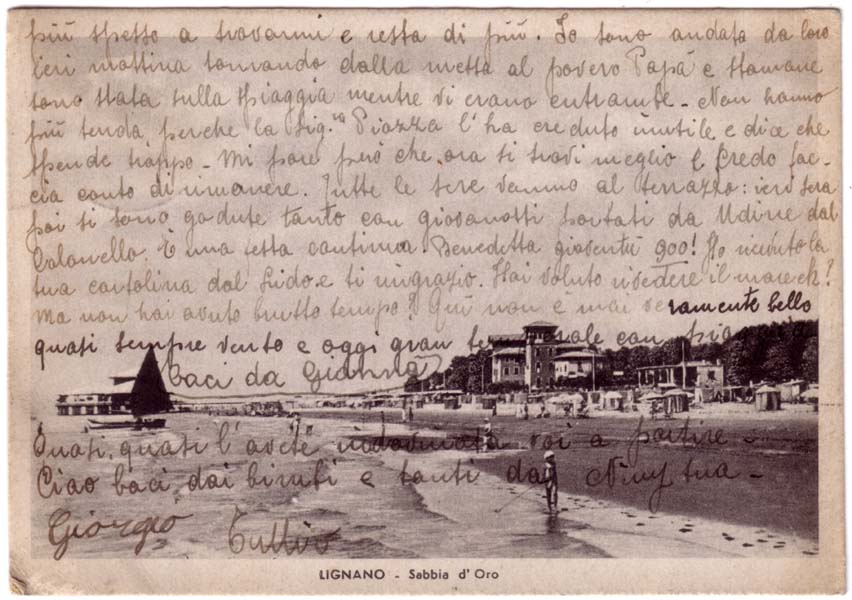 più spesso a trovarmi e resta di più. Io sono andata da loro
ieri mattina tornando dalla messa al povero Papà e stamane
sono stata sulla spiaggia mentre vi erano entrambe - Non hanno
più tenda perchè la Sig.ra Piazza l'ha creduto inutile e dice che
spende troppo - Mi pare però che ora si trovi meglio e credo fac-
cia conto di rimanere. Tutte le sere vanno al terrazzo: ieri sera
poi si sono godute tanto con giovanotti portati da Udine dal
Colonnello. È una festa continua. Benedetta gioventù 900! Ho ricevuto la
tua cartolina dal Lido e ti ringrazio. Hai voluto rivedere il mare eh?
Ma non hai avuto brutto tempo? Qui non è mai veramente bello
quasi sempre vento e oggi gran temporale con pioggia
baci da Gianna
Quasi, quasi l'avete indovinata voi a partire -
Ciao baci dai bimbi e tanti da Niny tua -
Giorgio Tullio
LIGNANO - Sabbia d'Oro